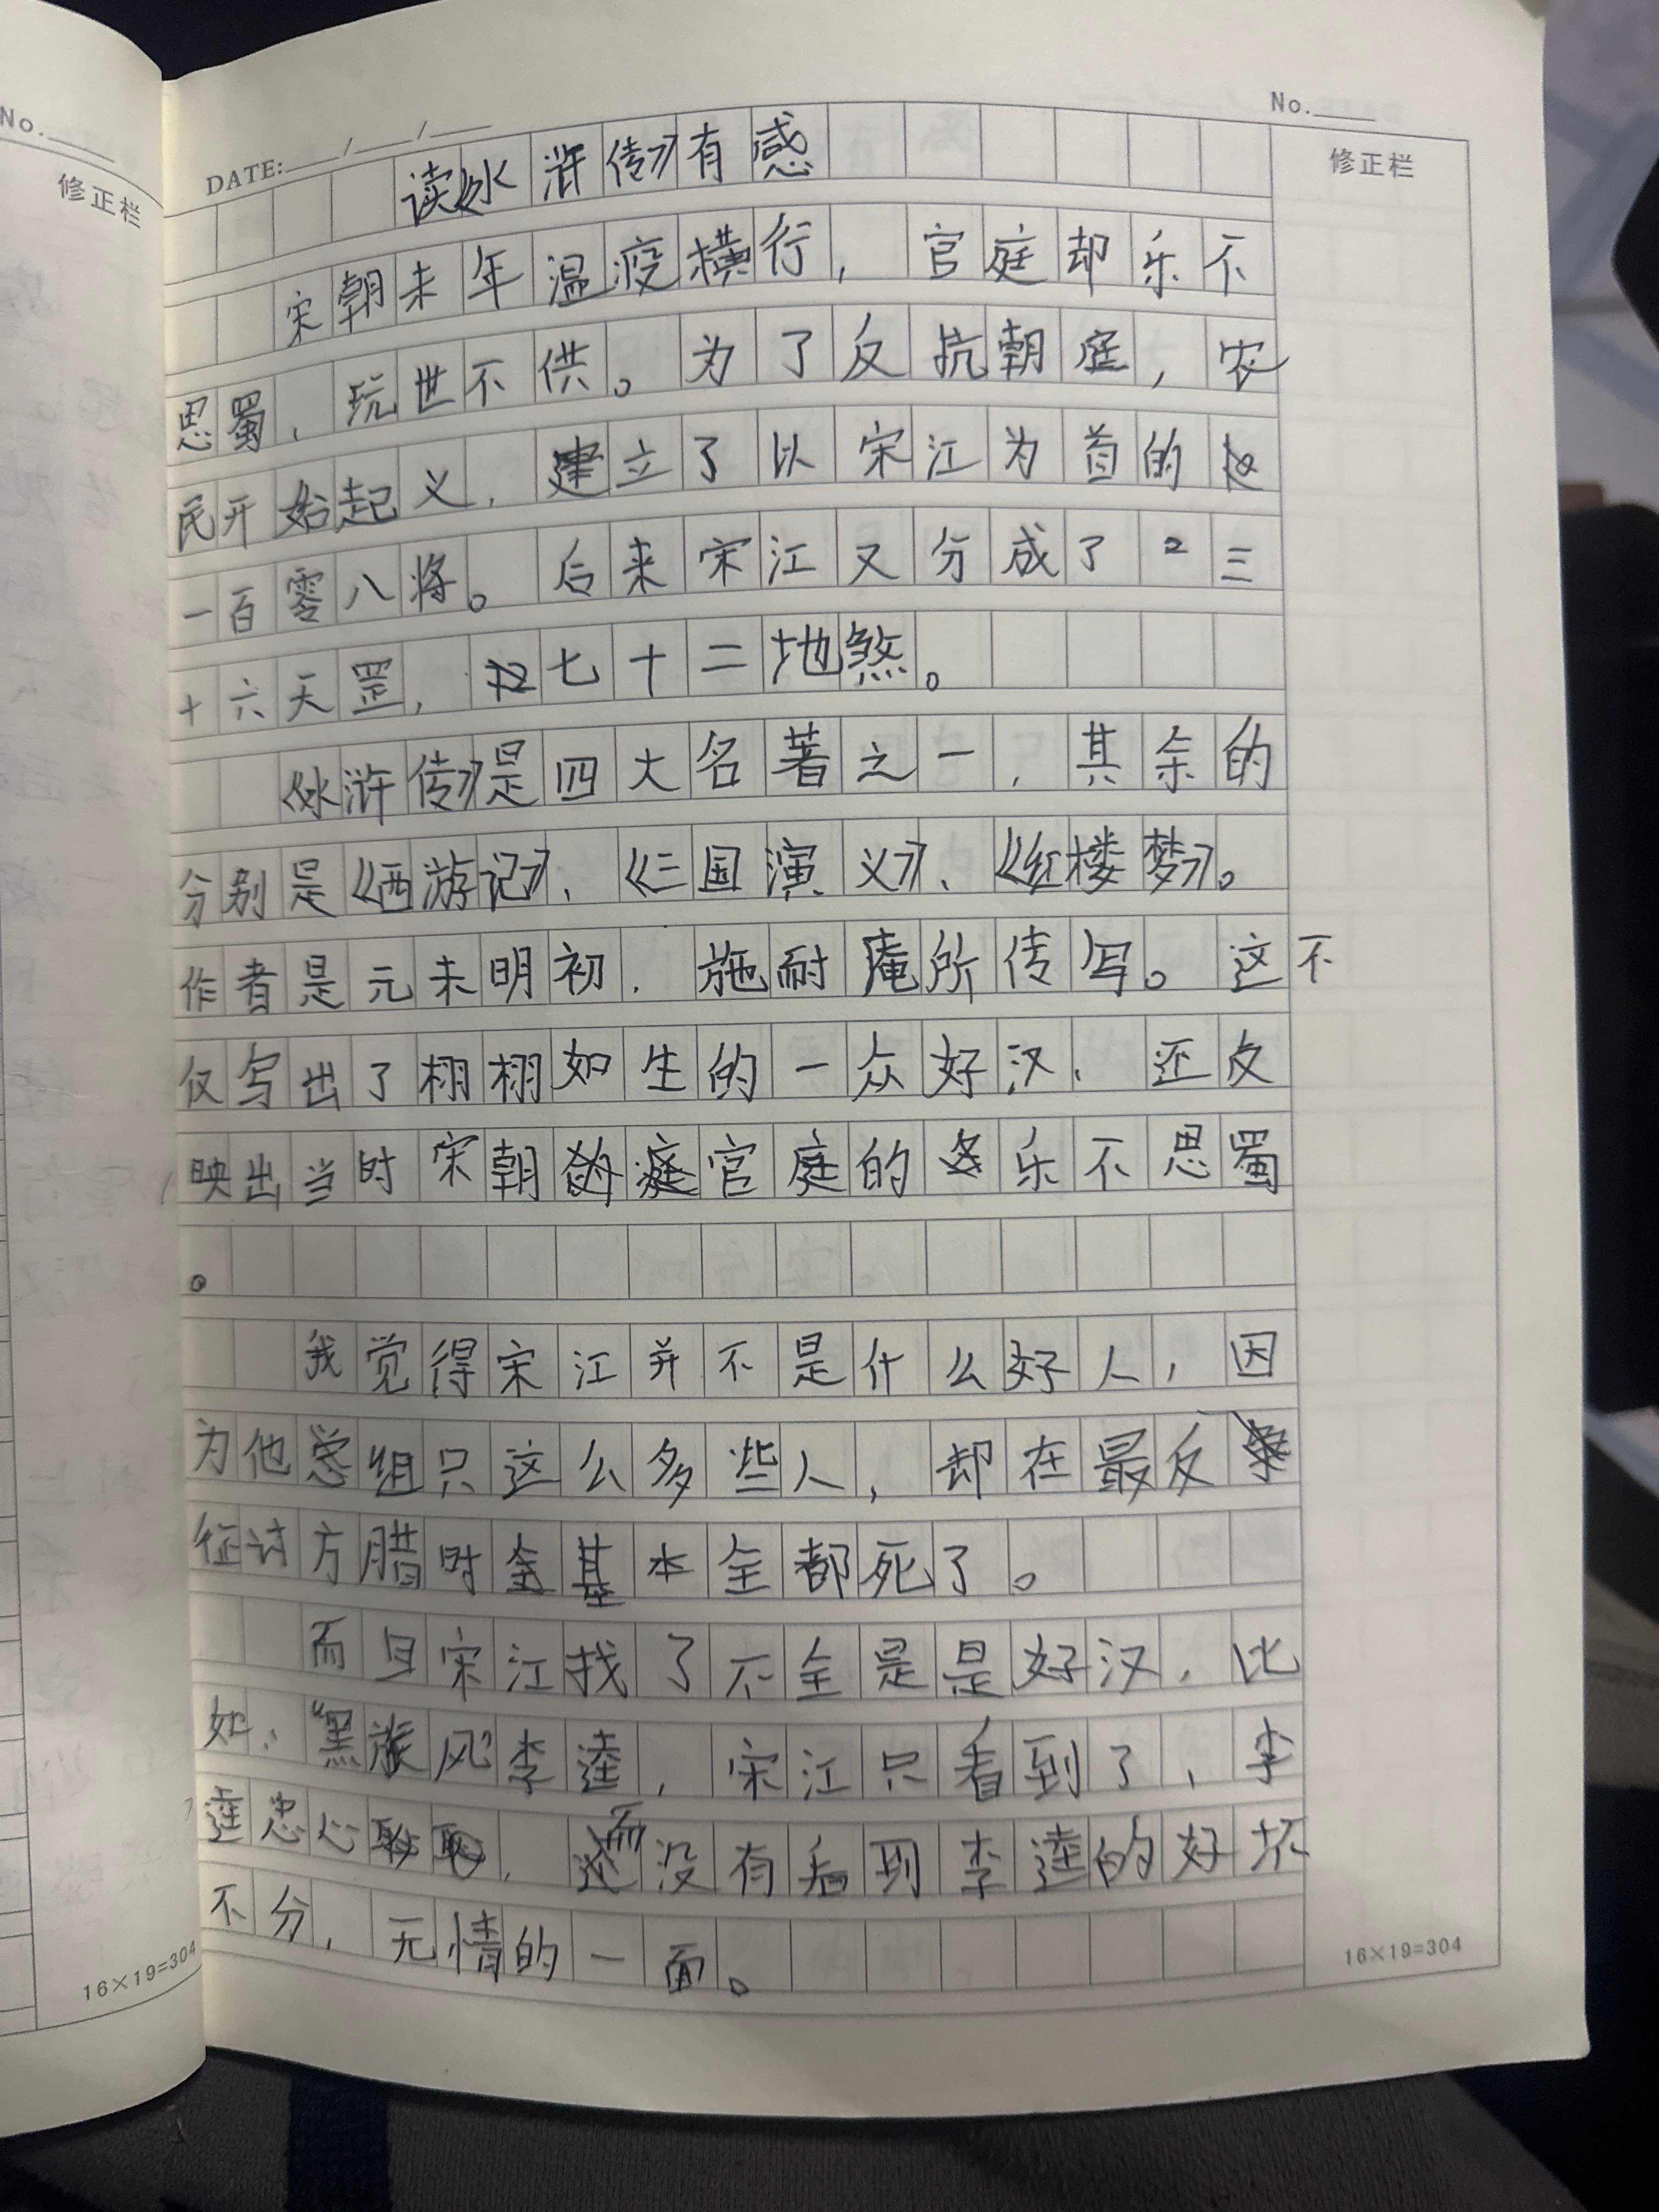 No.
修正栏
DATE: / /
No.
修正栏
读《水浒传》有感
宋朝末年温疫横行，官庭却乐不
思蜀，玩世不供。为了反抗朝庭，农
民开始起义，建立了以宋江为首的
一百零八将。后来宋江又分成了三
十六天罡，七十二地煞。
《水浒传》是四大名著之一，其余的
分别是《西游记》、《三国演义》、《红楼梦》。
作者是元末明初，施耐庵所传写。这不
仅写出了栩栩如生的一众好汉，还反
映出当时宋朝官庭的乐不思蜀
。
我觉得宋江并不是什么好人，因
为他组只这么多些人，却在最反
征讨方腊时基本全都死了。
而且宋江找了不全是是好汉，比
如，“黑旋风”李逵，宋江只看到了，李
逵忠心耿耿，而没有看到李逵的好坏
不分，无情的一面。
16×19=304
16×19=304